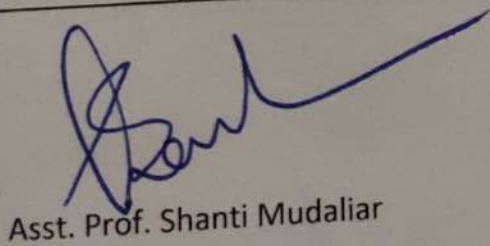 Asst. Prof. Shanti Mudaliar